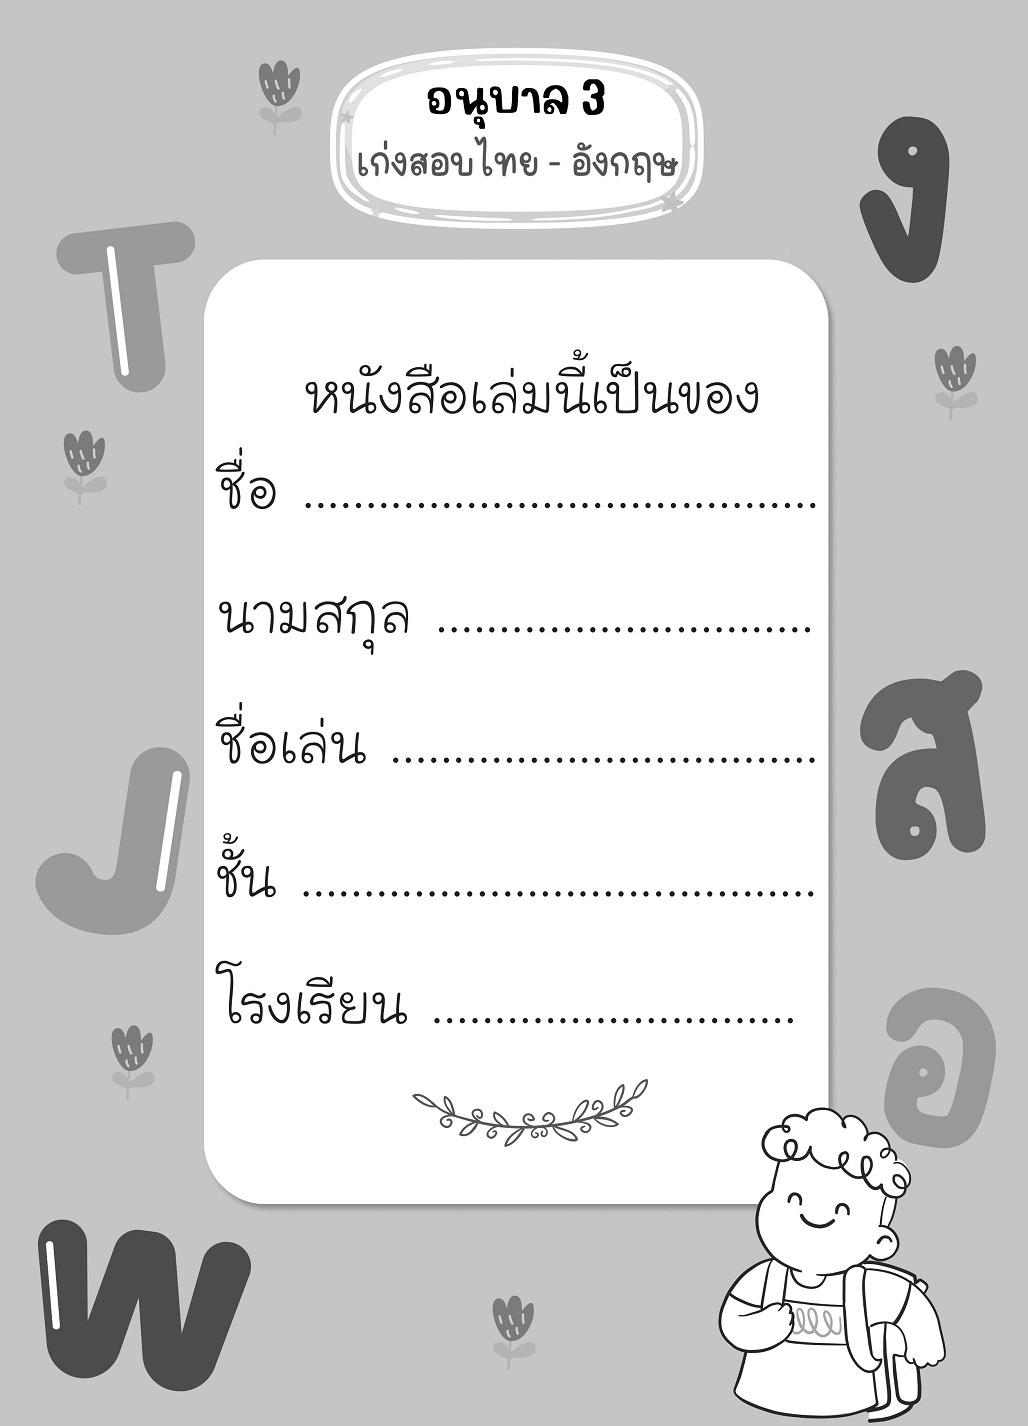 อนุบาล 3
เก่งสอบไทย - อังกฤษ
ง
T
หนังสือเล่มนี้เป็นของ
ชื่อ ..........................................
นามสกุล ..............................
ชื่อเล่น ...................................
ชั้น ..........................................
โรงเรียน .............................
ส
J
อ
W